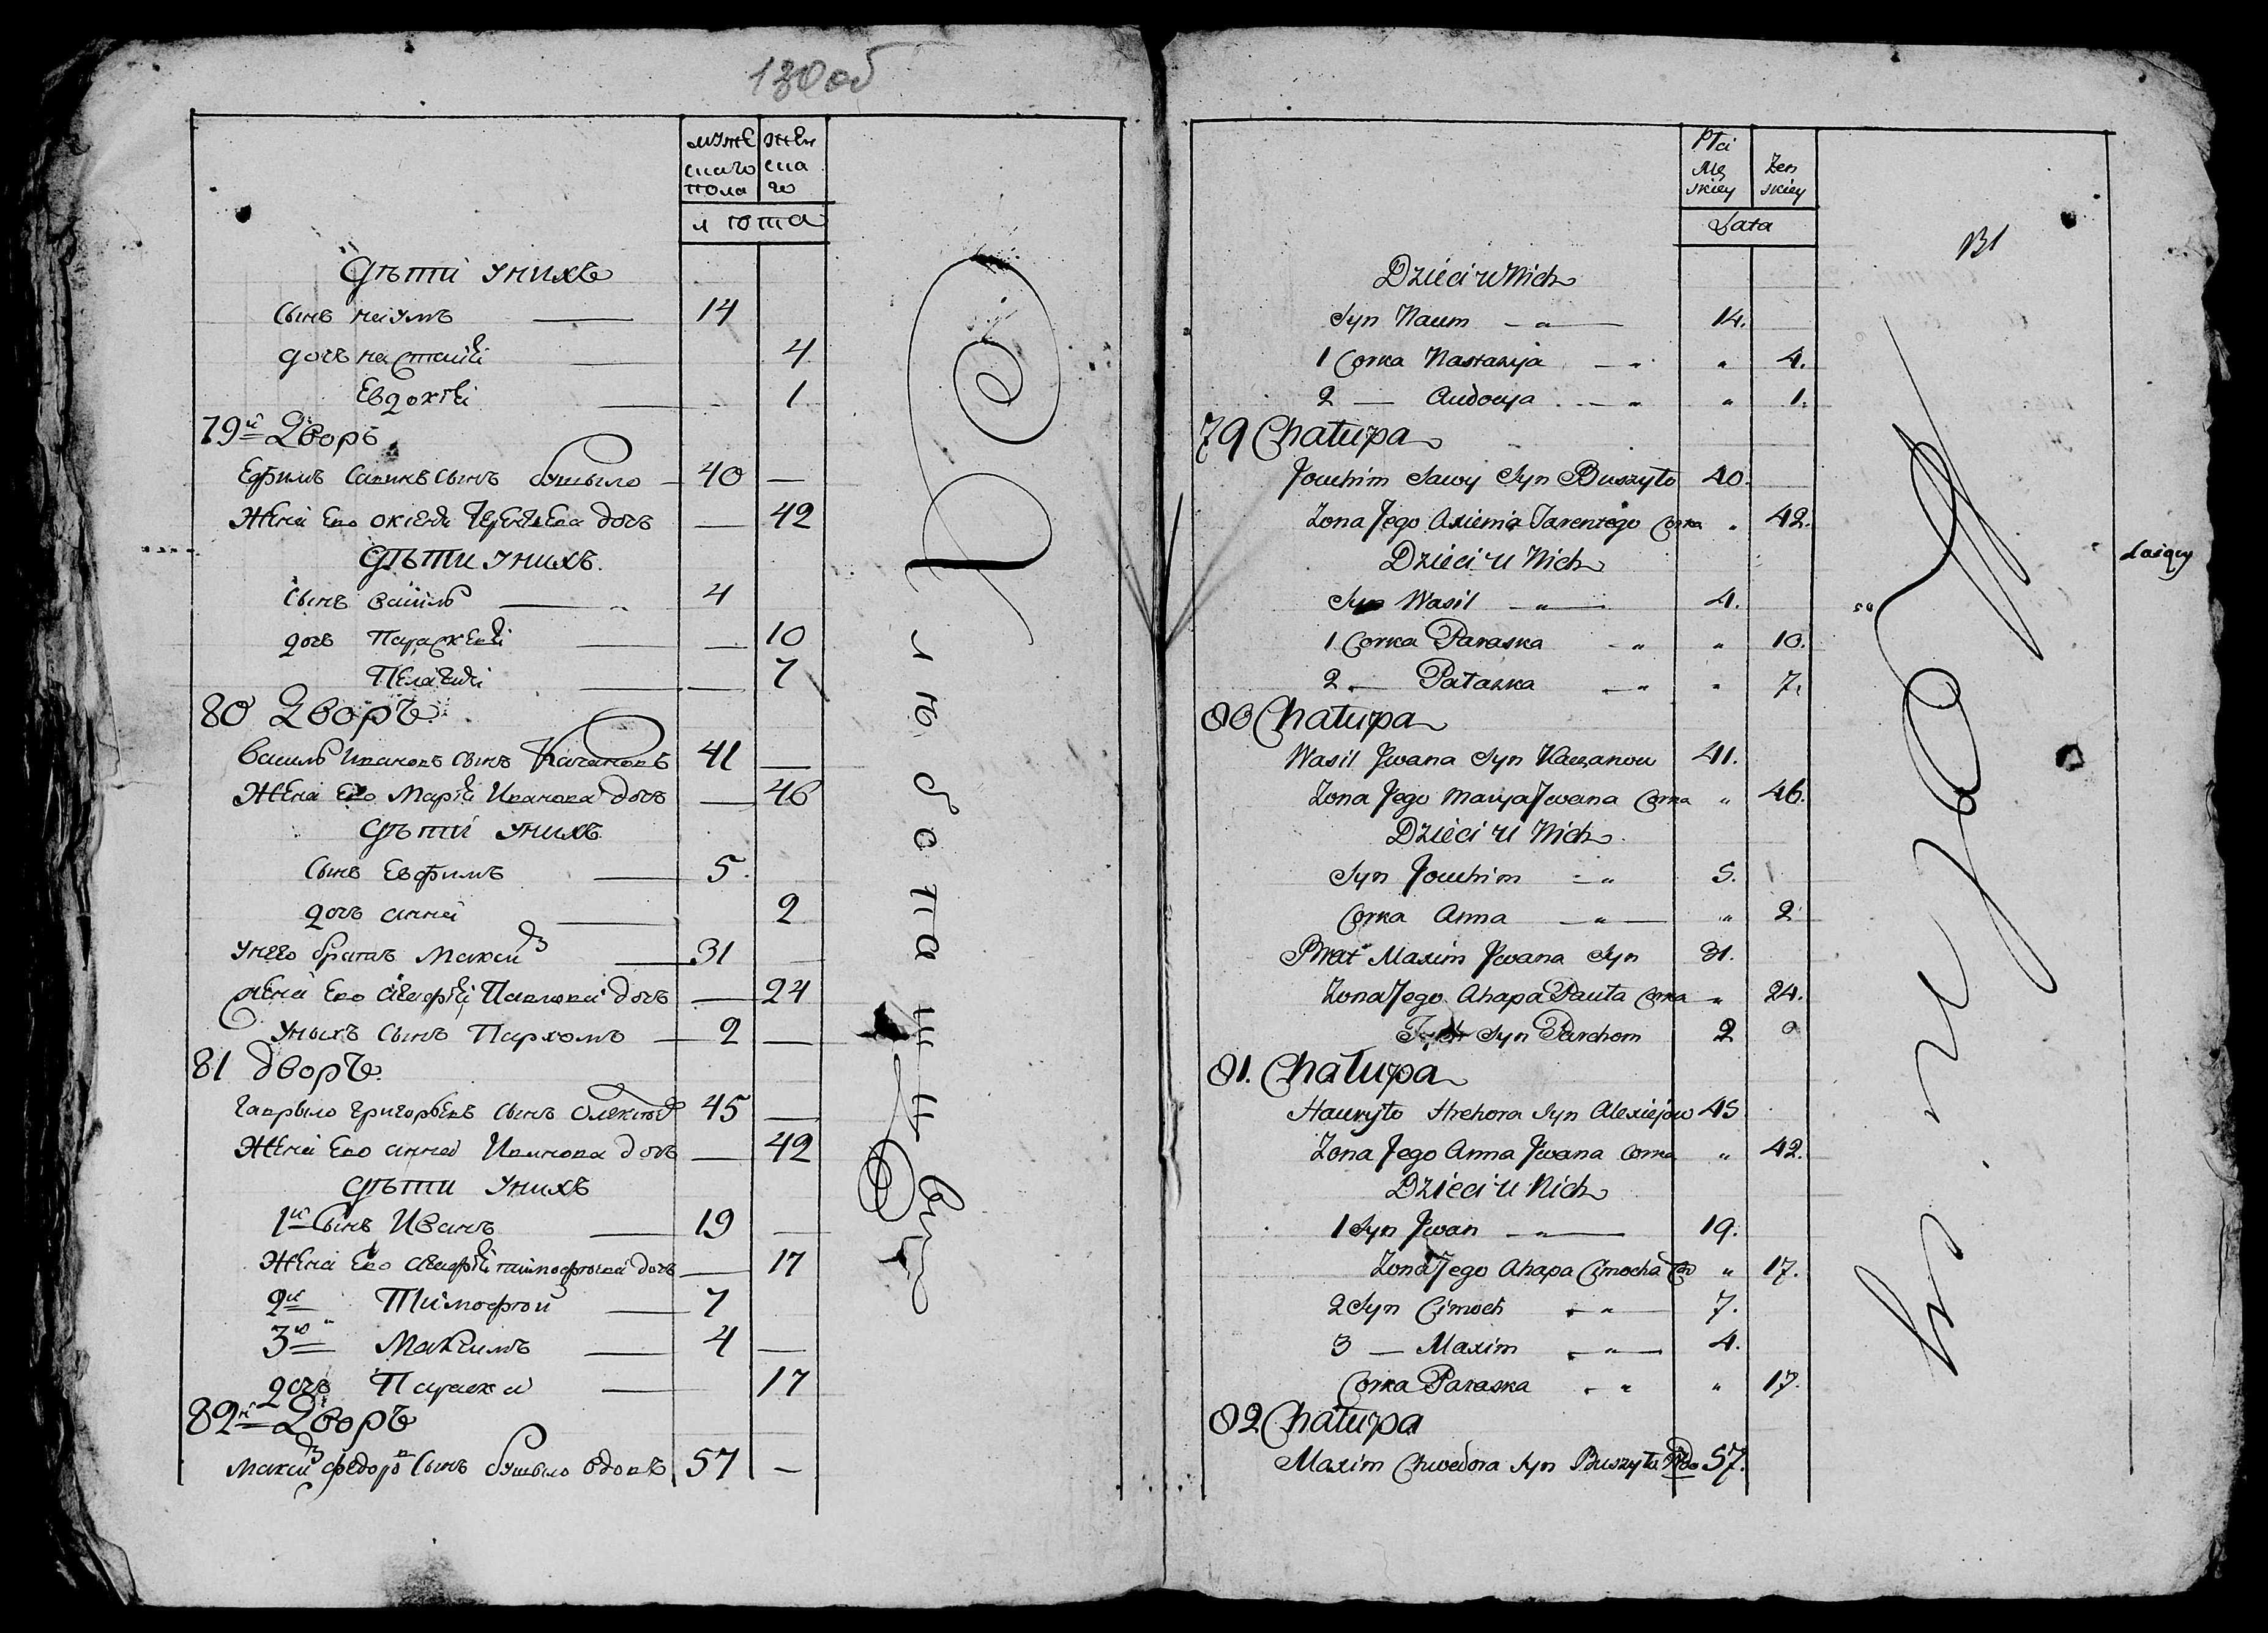 130 об
мужескаго пола женскаго
лѣта
Дѣти унихъ
сынъ наумъ 14
дочь настасія 4
Евдокія 1
79й Дворъ
Ефимъ Савинъ сынъ бушыло 40 —
Жена Его оксенія Терентьева дочь — 42
Дѣти унихъ
сынъ василь 4
дочь Параскевія — 10
Пелагия — 7
80 Дворъ
василь Ивановъ сынъ Качановъ 41 —
Жена Его Марія Иванова дочь — 46
Дѣти унихъ
Сынъ Евфимъ 5
дочь анна 2
унего братъ Максим 31 —
жена Его агафія Павлова дочь — 24
уныхъ сынъ Пархомъ 2 —
81 дворъ
гаврыло григорьевъ сынъ Олексѣев 45 —
Жена Его анна Иванова дочь — 42
Дѣти унихъ
1й Сынъ Иванъ 19 —
Жена Его агафія тимофѣева дочь — 17
2й Тимофѣй 7
3й Максимъ 4 —
дочь Параска 17
82й Дворъ
Максим федоров Сынъ бушыло вдовъ 57 —
Płci Męskiey Żenskiey
Lata
131
Dzieci u Nich
Syn Naum — " — 14.
1 Corka Nastazyja — " " 4.
2 — Audocya — " " 1.
79 Chałupa
Jouchim Sawy Syn Buszyło 40.
Zona Jego Axienia Tarentego Corka " 42.
Dzieci u Nich
Syn Wasil — " — 4.
1 Corka Paraska — " " 10.
2 — Pałazka — " " 7.
80 Chałupa
Wasil Jwana Syn Kaczanow 41.
Zona Jego Marya Jwana Corka " 46.
Dzieci u Nich
Syn Jouchim — " 5.
Corka Anna — " — " 2
Brat Maxim Jwana Syn 31.
Zona Jego Ahapa Pauła Corka " 24.
Syn Parchom 2
81. Chałupa
Hauryło Hrehora Syn Alexiejow 45
Zona Jego Anna Jwana Corka " 42.
Dzieci u Nich
1 Syn Jwan — " — 19.
Zona Jego Ahapa Cimocha Cor " 17.
2 Syn Cimoch — " — 7.
3 — Maxim — " — 4.
Corka Paraska — " " 17.
82 Chałupa
Maxim Chwedora Syn Buszyło Wdo 57.